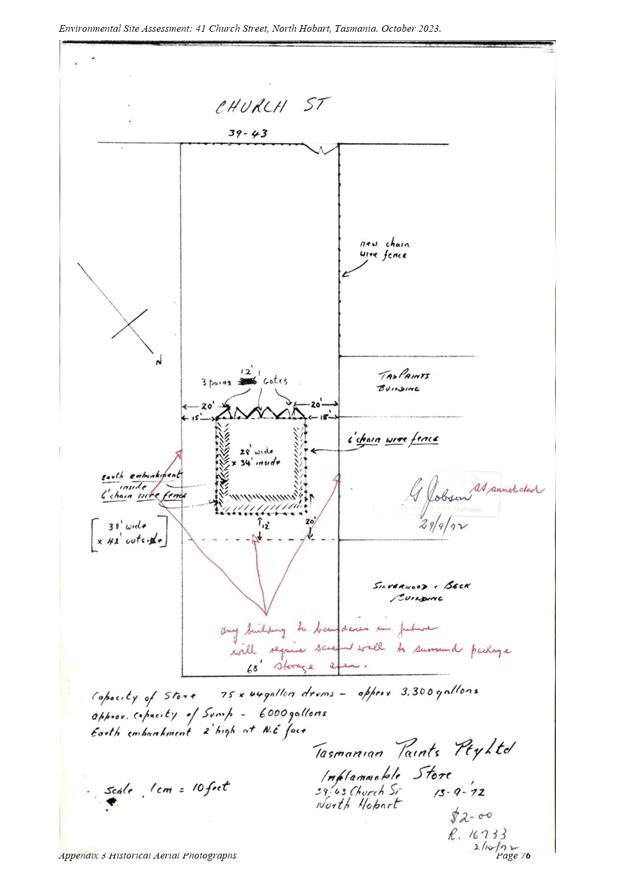 Environmental Site Assessment: 41 Church Street, North Hobart, Tasmania. October 2023.
CHURCH ST
39-43
new chain
wire fence
N
12'
3 pairs Gates
TasPaints
Building
20' 20'
15' 15'
6' chain wire fence
28' wide
x 34' inside
Earth embankment
inside
6' chain wire fence
G Jobson as annotated
29/9/72
38' wide
x 42' outside
12' 20'
Silverwood & Beck
Building
any building to boundaries in future
will require screen wall to surround package
storage area.
68'
Capacity of Store 75 x 44 gallon drums - approx 3,300 gallons
Approx. capacity of Sump - 6000 gallons
Earth embankment 2' high at N.E face
Tasmanian Paints Pty Ltd
Inflammable Store
Scale 1cm = 10 feet
39-43 Church St 13-9-'72
North Hobart
$2-00
R. 16733
2/10/72
Appendix 3 Historical Aerial Photographs Page 76